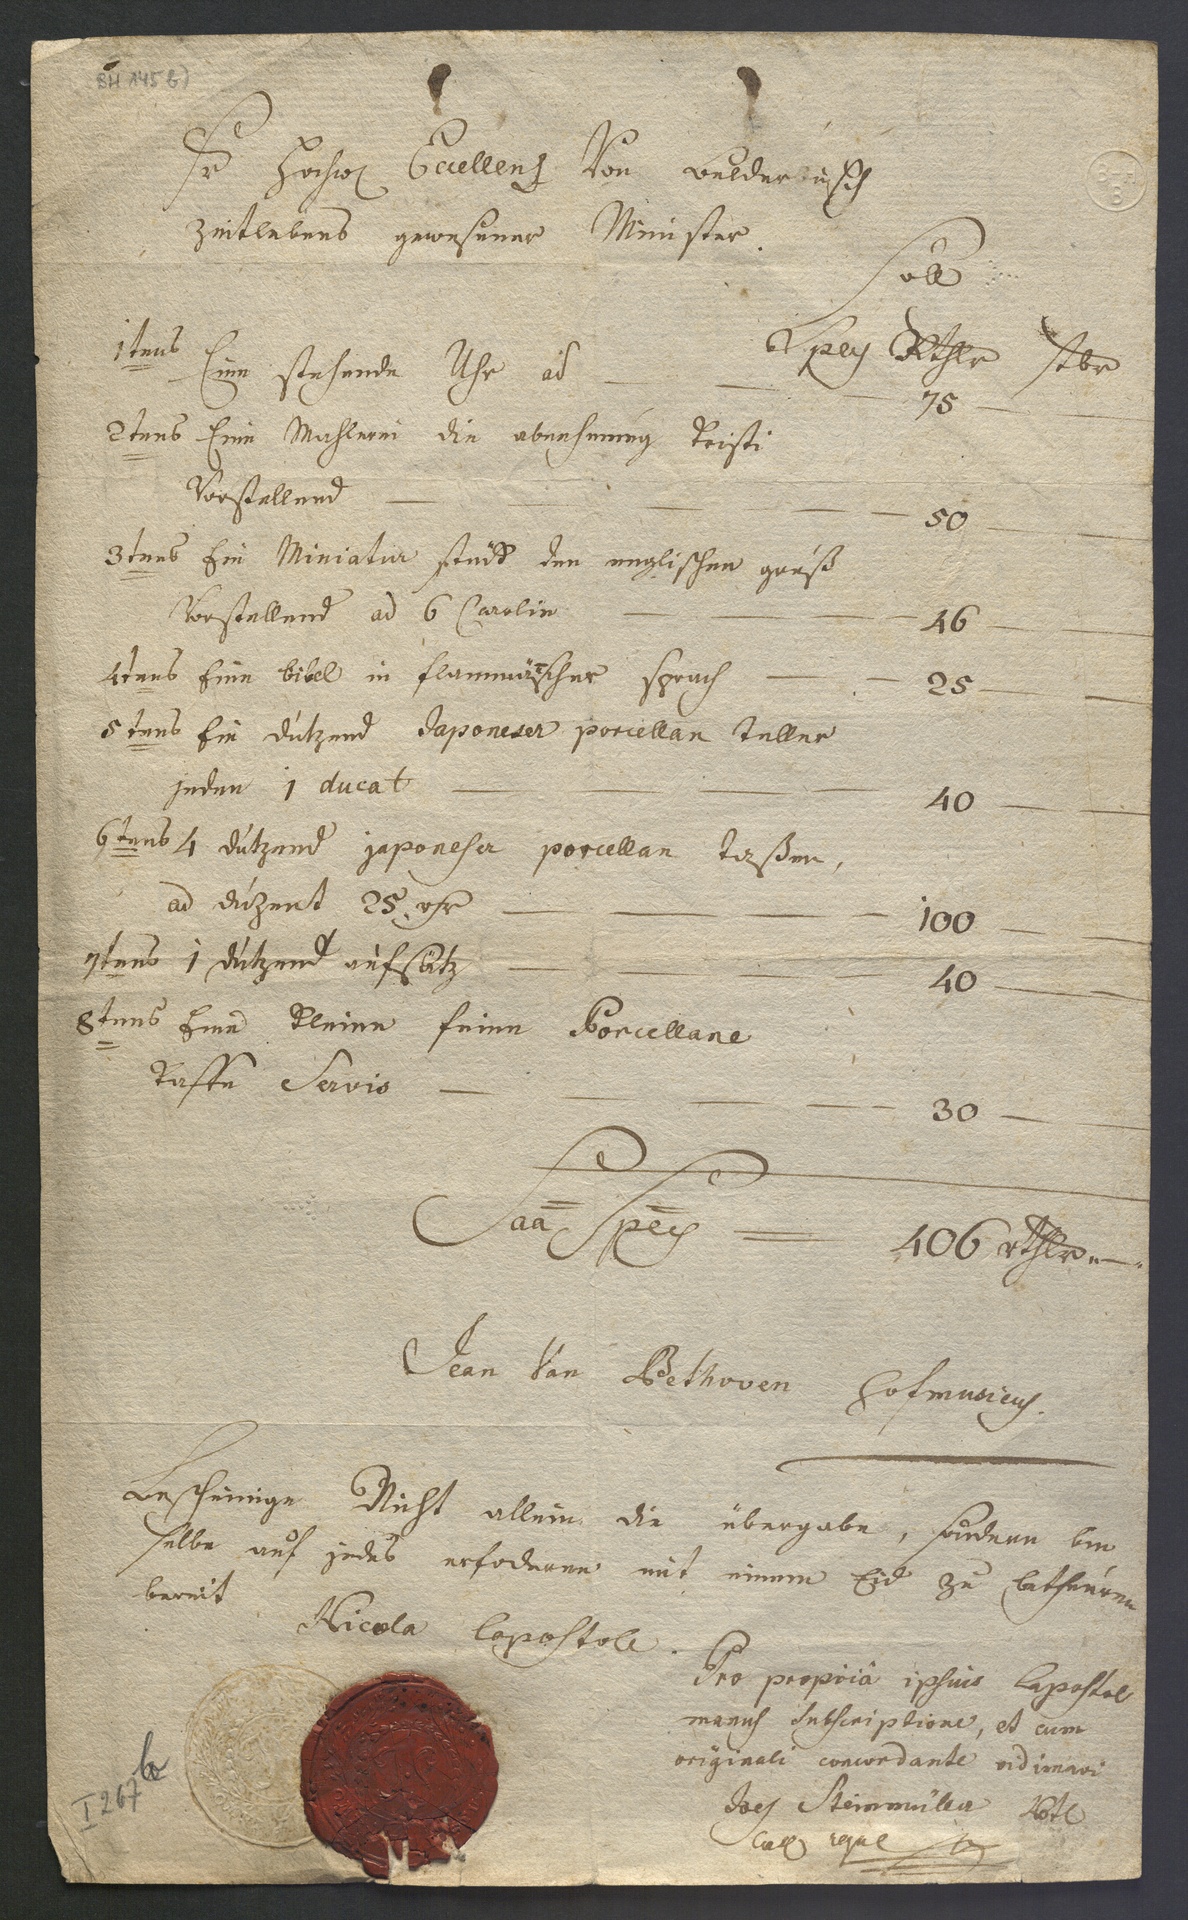 BH 145 b)
Sr Hochw Excellenz Von Belderbusch
zeitlebens gewesener Minister.
Soll
Spez Rthlr stbr
1tens Eine stehende Uhr ad — — — 75 —
2tens Eine Mahlerei die abnehmung Kristi
Vorstellend — — — — 50 —
3tens Ein Miniatur stück den englischen gruß
Vorstellend ad 6 Carolin — — — 46 —
4tens Eine bibel in flammäischer sprach — — 25 —
5tens Ein dutzend Japoneser porcellan teller
jeden 1 ducat — — — — 40 —
6tens 4 dutzend japoneser porcellan taßen,
ad duzent 25 rhr — — — — 100 —
7tens 1 dutzend aufsätz — — — 40 —
8tens Eine Kleine feine Porcellane
Kaffe Servis — — — — 30 —
Saa Spez = 406 rthlr „—„
Jean Van Bethoven Hofmusicus.
Bescheinige Nicht allein die übergabe, sondern bin
selbe auf jedes erfoderen mit einem Eid zu betheuren
bereit
Nicola Lapostole.
Pro propriâ ipsius Lapostol
manus subscriptione, et cum
originali concordante vidimavi
Joes Steinmüller Nots
Caes
I 267 b